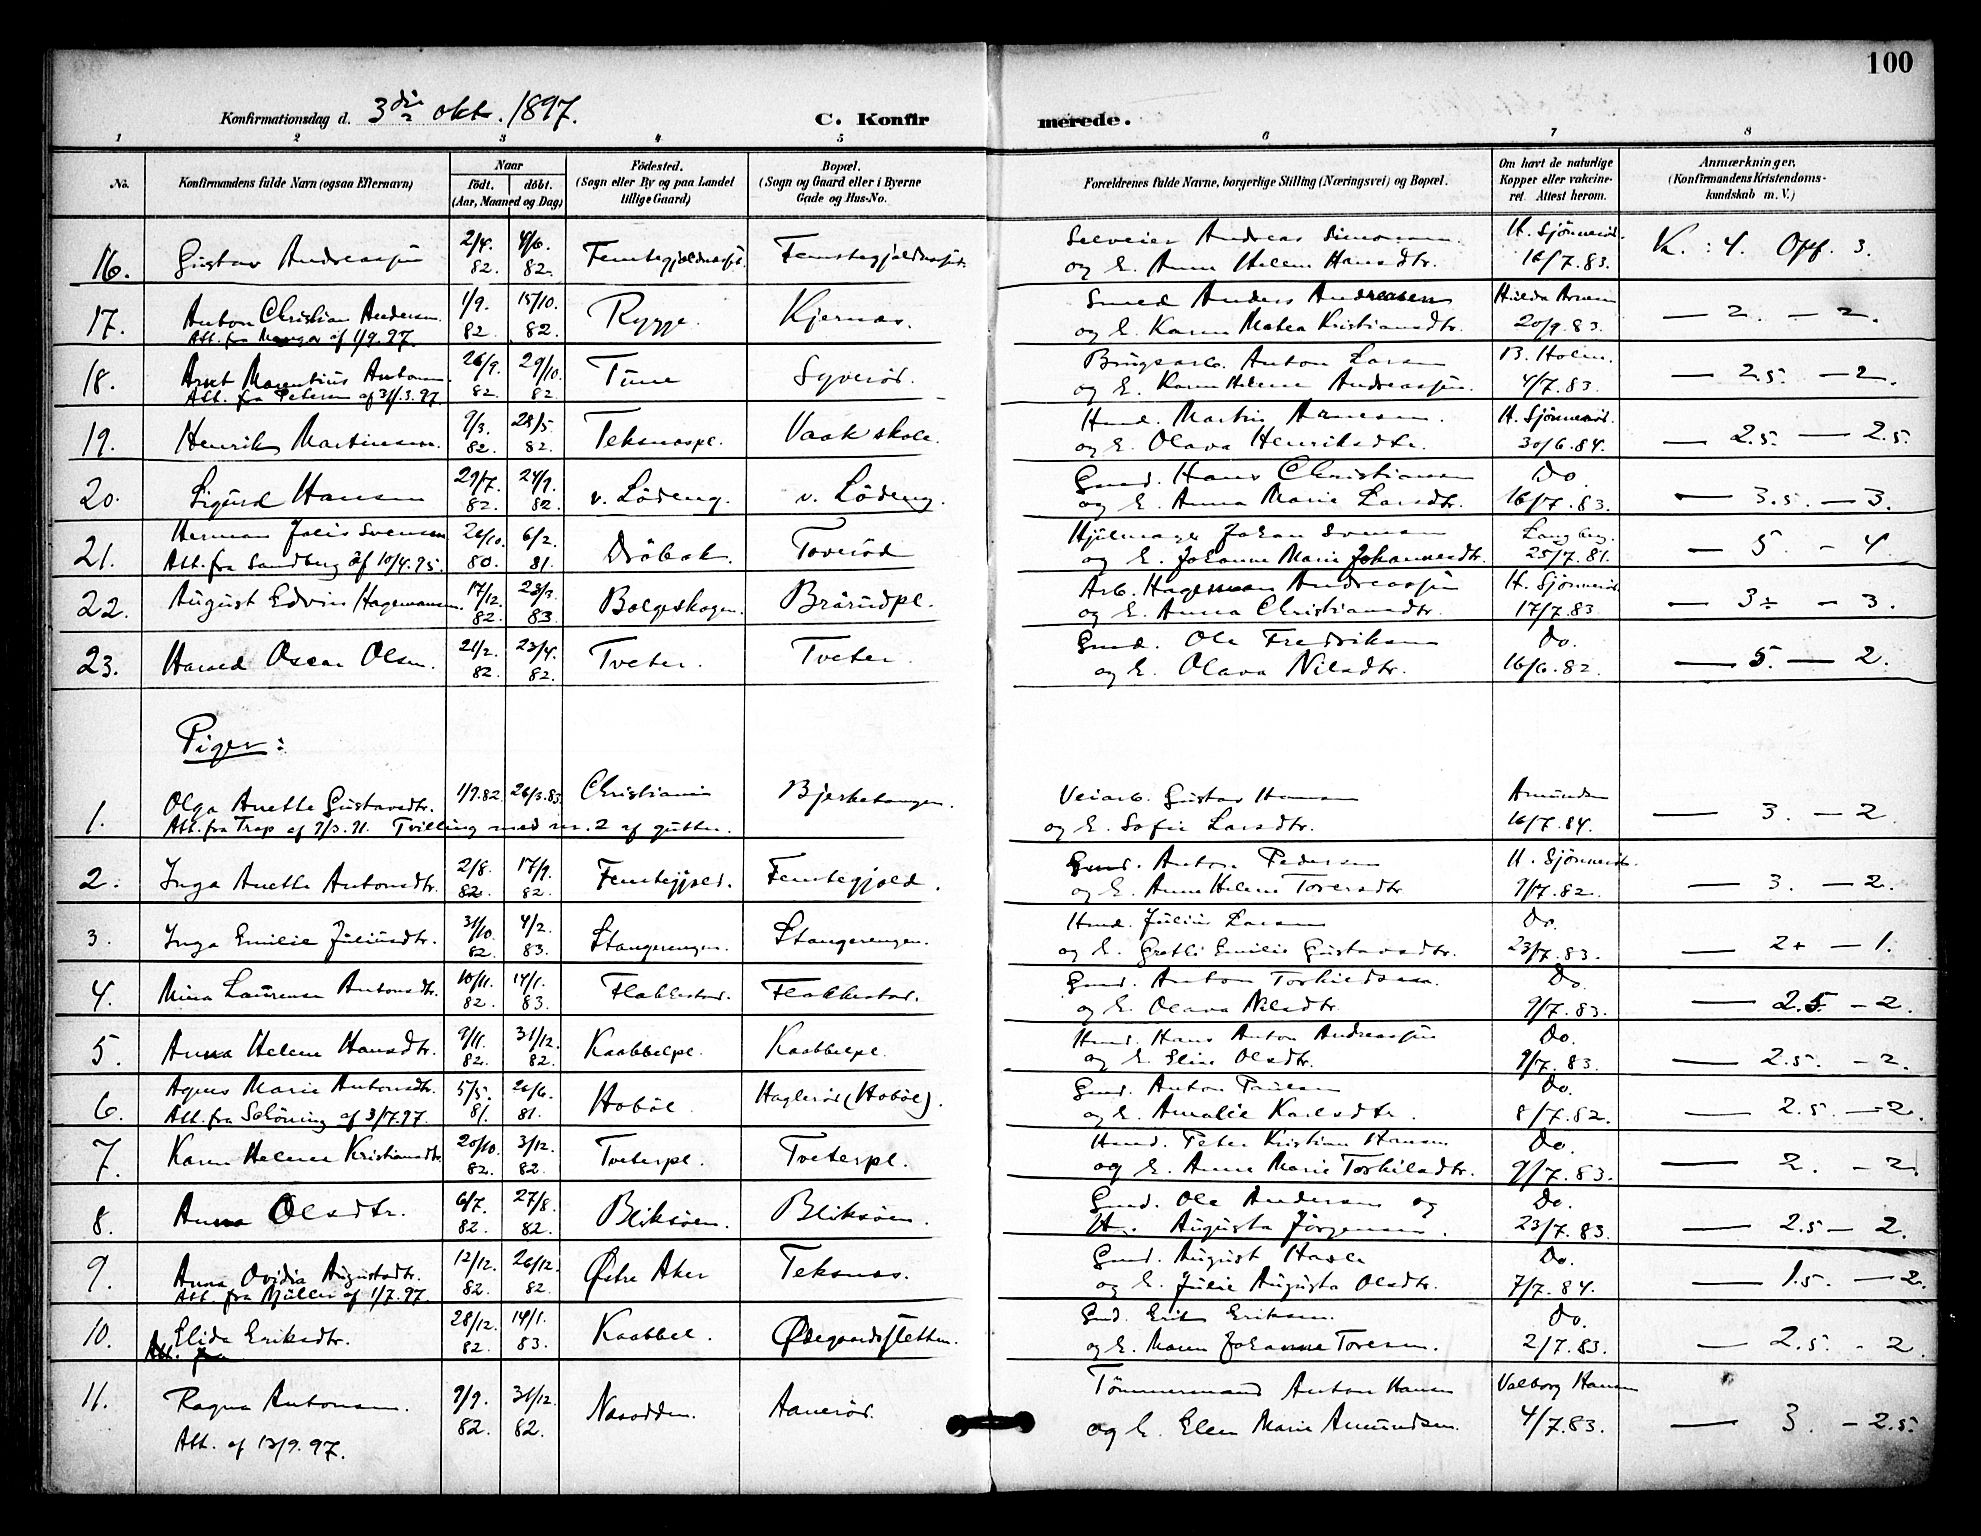 100
Konfirmationsdag d. 3die okt. 1897.
C. Konfirmerede.
1 2 3 4 5 6 7 8
No.
Konfirmandens fulde Navn (ogsaa Efternavn)
Naar
födt. döbt.
(Aar, Maaned og Dag)
Födested.
(Sogn eller By og paa Landet
tillige Gaard)
Bopæl.
(Sogn og Gaard eller i Byerne
Gade og Hus-No.
Forældrenes fulde Navne, borgerlige Stilling (Næringsvei) og Bopæl.
Om havt de naturlige
Kopper eller vakcine-
ret. Attest herom.
Anmærkninger.
(Konfirmandens Kristendoms-
kundskab m. V.)
16. Gustav Andreassen 2/4. 82. 4/6. 82. Selveier Andreas Simonsen H. Sjönneröd.
og E. Anne Helene Hansdtr. 16/7.83. K. : 4. Opf. 3.
17. Anton Christian Andersen 1/9. 82 15/10. 82. Rygge. Kjernes. Smed Anders Andreasen
Att. fra af 1/9.97. og E. Karen Matea Kristiansdtr. 20/9.83. — 2. — 2.
18. Arnt Marentius Antonsen 26/9. 82 29/10. 82. Tune Syveröd. Anton Larsen B. Holm.
Att. fra Petersen af 31/3.97. og E. Karen Helene Andreassen 4/7.83. — 2.5. — 2.
19. Henrik Martinsen. 9/3. 82. 28/5. 82. Teksnespl. Vaak skole. Husmd. Martin Hansen H. Sjönneröd.
og E. Olava Henriksdtr. 30/6.84. — 2.5. — 2.5.
20. Sigurd Hansen 29/7. 82. 24/9. 82. v. Lödeng. v. Lödeng. Gmd. Hans Christiansen Do.
og E. Anna Marie Larsdtr. 16/7.83. — 3.5. — 3.
21. Herman Svensen 26/10. 80. 6/2. 81. Dröbak Toveröd Hjulmager Johan Svensen Langberg.
Att. fra Sandberg af 10/4.95. og E. Johanne Marie Johannesdtr. 25/7.81. — 5 - 4
22. August Edvin Hagemansen. 17/12. 82. 28/3. 83. Bolgeskogen. Brårudpl. Arb. Hageman Andreassen H. Sjönneröd
og E. Anna Christiansdtr. 17/7.83. — 3÷ — 3.
23. Harald Oscar Olsen. 21/2. 82. 23/4. 82. Tveter. Tveter Gmd. Ole Fredriksen Do.
og E. Olava Nilsdtr. 16/6.82. — 5. — 2.
Piger:
1. Olga Anette Gustavsdtr. 1/9.82 26/3.83. Christiania Bjerketangen. Veiarb. Gustav Hansen Amundsen
Att. fra Trap af 9/3.91. Tvilling med nr. 2 af gutter. og E. Sofie Larsdtr. 16/7.84. — 3. — 2.
2. Inga Anette Antonsdtr. 2/8. 82. 17/9. 82. Femtegjeld. Femtegjeld. Gmd. Anton Pedersen H. Sjönneröd.
og E. Anne Helene Toresdtr 9/7.82. — 3. — 2.
3. Inga Emilie Juliusdtr. 31/10. 82. 4/2. 83. Stangerengen. Stangerengen. Husmd. Julius Larsen Do.
og E. Grethe Emilie Gustavsdtr. 23/7.83. — 2+ — 1.
4. Mina Laurense Antonsdtr. 10/11. 82. 14/1. 83. Flakkestad. Flakkestad. Gmd. Anton Torkildsen Do.
og E. Olava Nilsdtr. 9/7.83. — 2.5 — 2.
5. Anna Helene Hansdtr. 9/11. 82. 31/12. 82. Kaabbelpl. Kaabbelpl. Husmd. Hans Anton Andreassen Do.
og E. Eline Olsdtr. 9/7.83. — 2.5. — 2.
6. Agnes Marie Antonsdtr. 5/5. 81. 26/6. 81. Hobøl Hagleröd (Hobøl). Gmd. Anton Paulsen Do.
Att. fra Schöning af 3/7.97. og E. Amalie Karlsdtr. 8/7.82. — 2.5. — 2.
7. Karen Helene Kristiansdtr. 20/10. 82. 3/12. 82. Tveterpl. Tveterpl. Husmd. Peter Kristian Hansen Do.
og E. Anne Marie Torkildsdtr. 9/7.83. — 2. — 2.
8. Anna Olsdtr. 6/7. 82. 27/8. 82. Bliksöen. Bliksöen. Gmd. Ole Andersen og Do.
H. Augusta Jörgensen. 23/7.83. — 2.5 — 2.
9. Anna Ovidia Augustsdtr. 12/12. 82. 26/12. 82. Østre Aker Teksnes. Gmd. August Do.
Att. fra Müller af 1/7.97. og E. Julie Augusta Olsdtr. 7/7.84. — 1.5. — 2.
10. Elida Eriksdtr. 28/12. 82. 14/1. 83. Kaabbel. Ødegaardssletten. Gmd. Erik Eriksen. Do.
Att. fra og E. Maren Johanne Toresen. 2/7.83. — 2.5. - 2.
11. Ragna Antonsen. 9/9. 82. 31/12. 82. Nesodden. Aaneröd. Tömmermand Anton Hansen Valborg Hansen
Att. af 13/9.97. og E. Elen Marie Amundsen. 4/7.83. — 3. — 2.5.